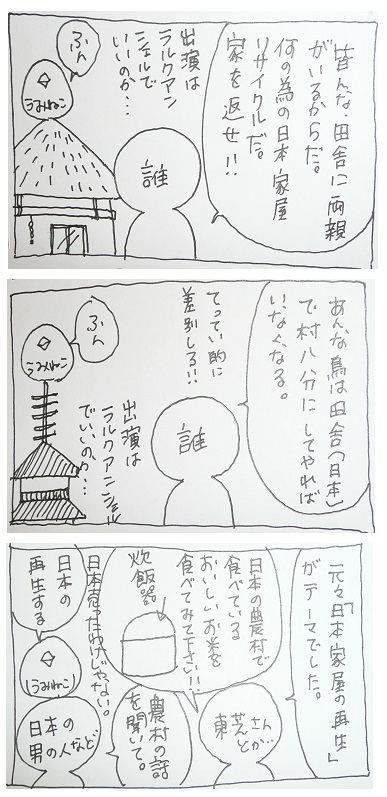 皆んな、田舎に両親
がいるからだ。
何の為の日本家屋
リサイクルだ。
家を返せ!!
出演は
ラルクアン
シエルで
いいのか…
ふん
うみねこ
誰
あんな鳥は田舎(日本)
で村八分にしてやれば
いなくなる。
てってい的に
差別しろ!!
ふん
うみねこ
誰
出演は
ラルクアンシエル
でいいのか…
元々「日本家屋の再生」
がテーマでした。
日本の農村で
食べている
おいしいお米を
食べてみて下さい!!
炊飯器
東芝さん
とかが
農村の話
を聞いて。
日本をすてたわけじゃない。
日本の
再生する
(うみねこ)
日本の
男の人など